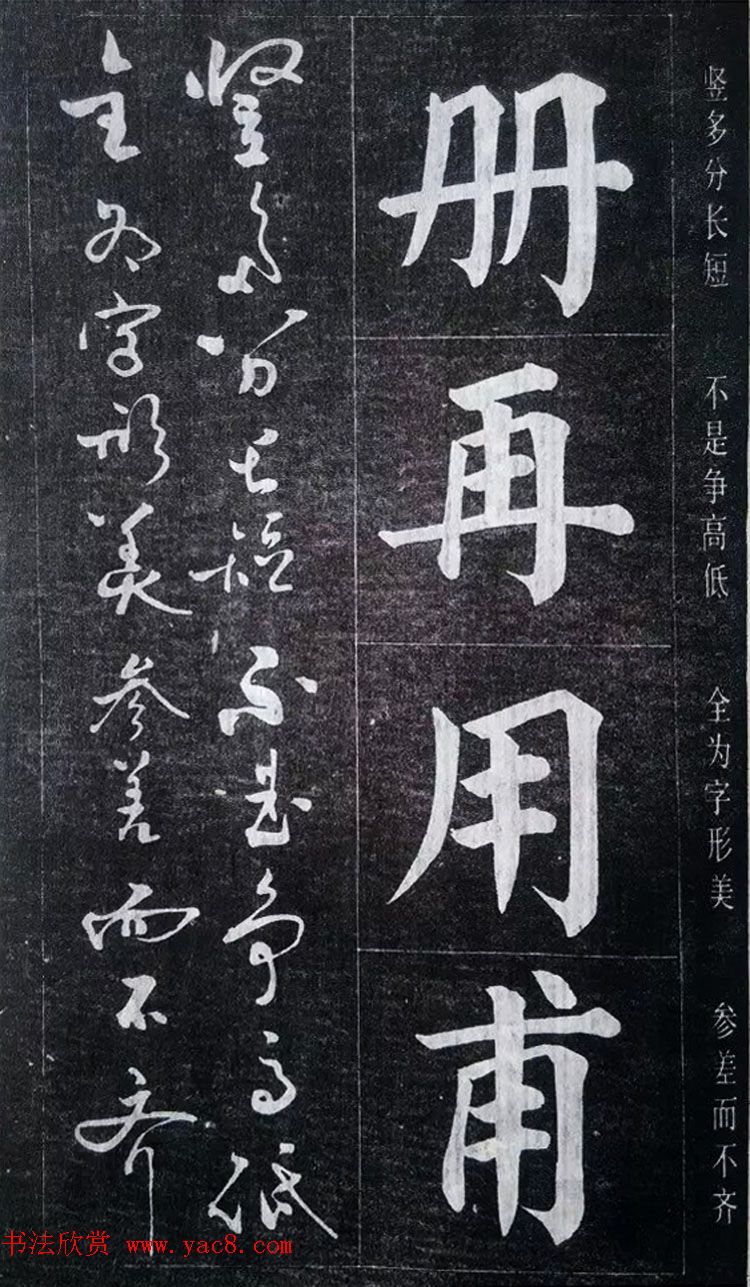 竖多分长短 不是争高低 全为字形美 参差而不齐
册再用甫
竖多分长短不是争高低
全为字形美参差而不齐
书法欣赏 www.yac8.com